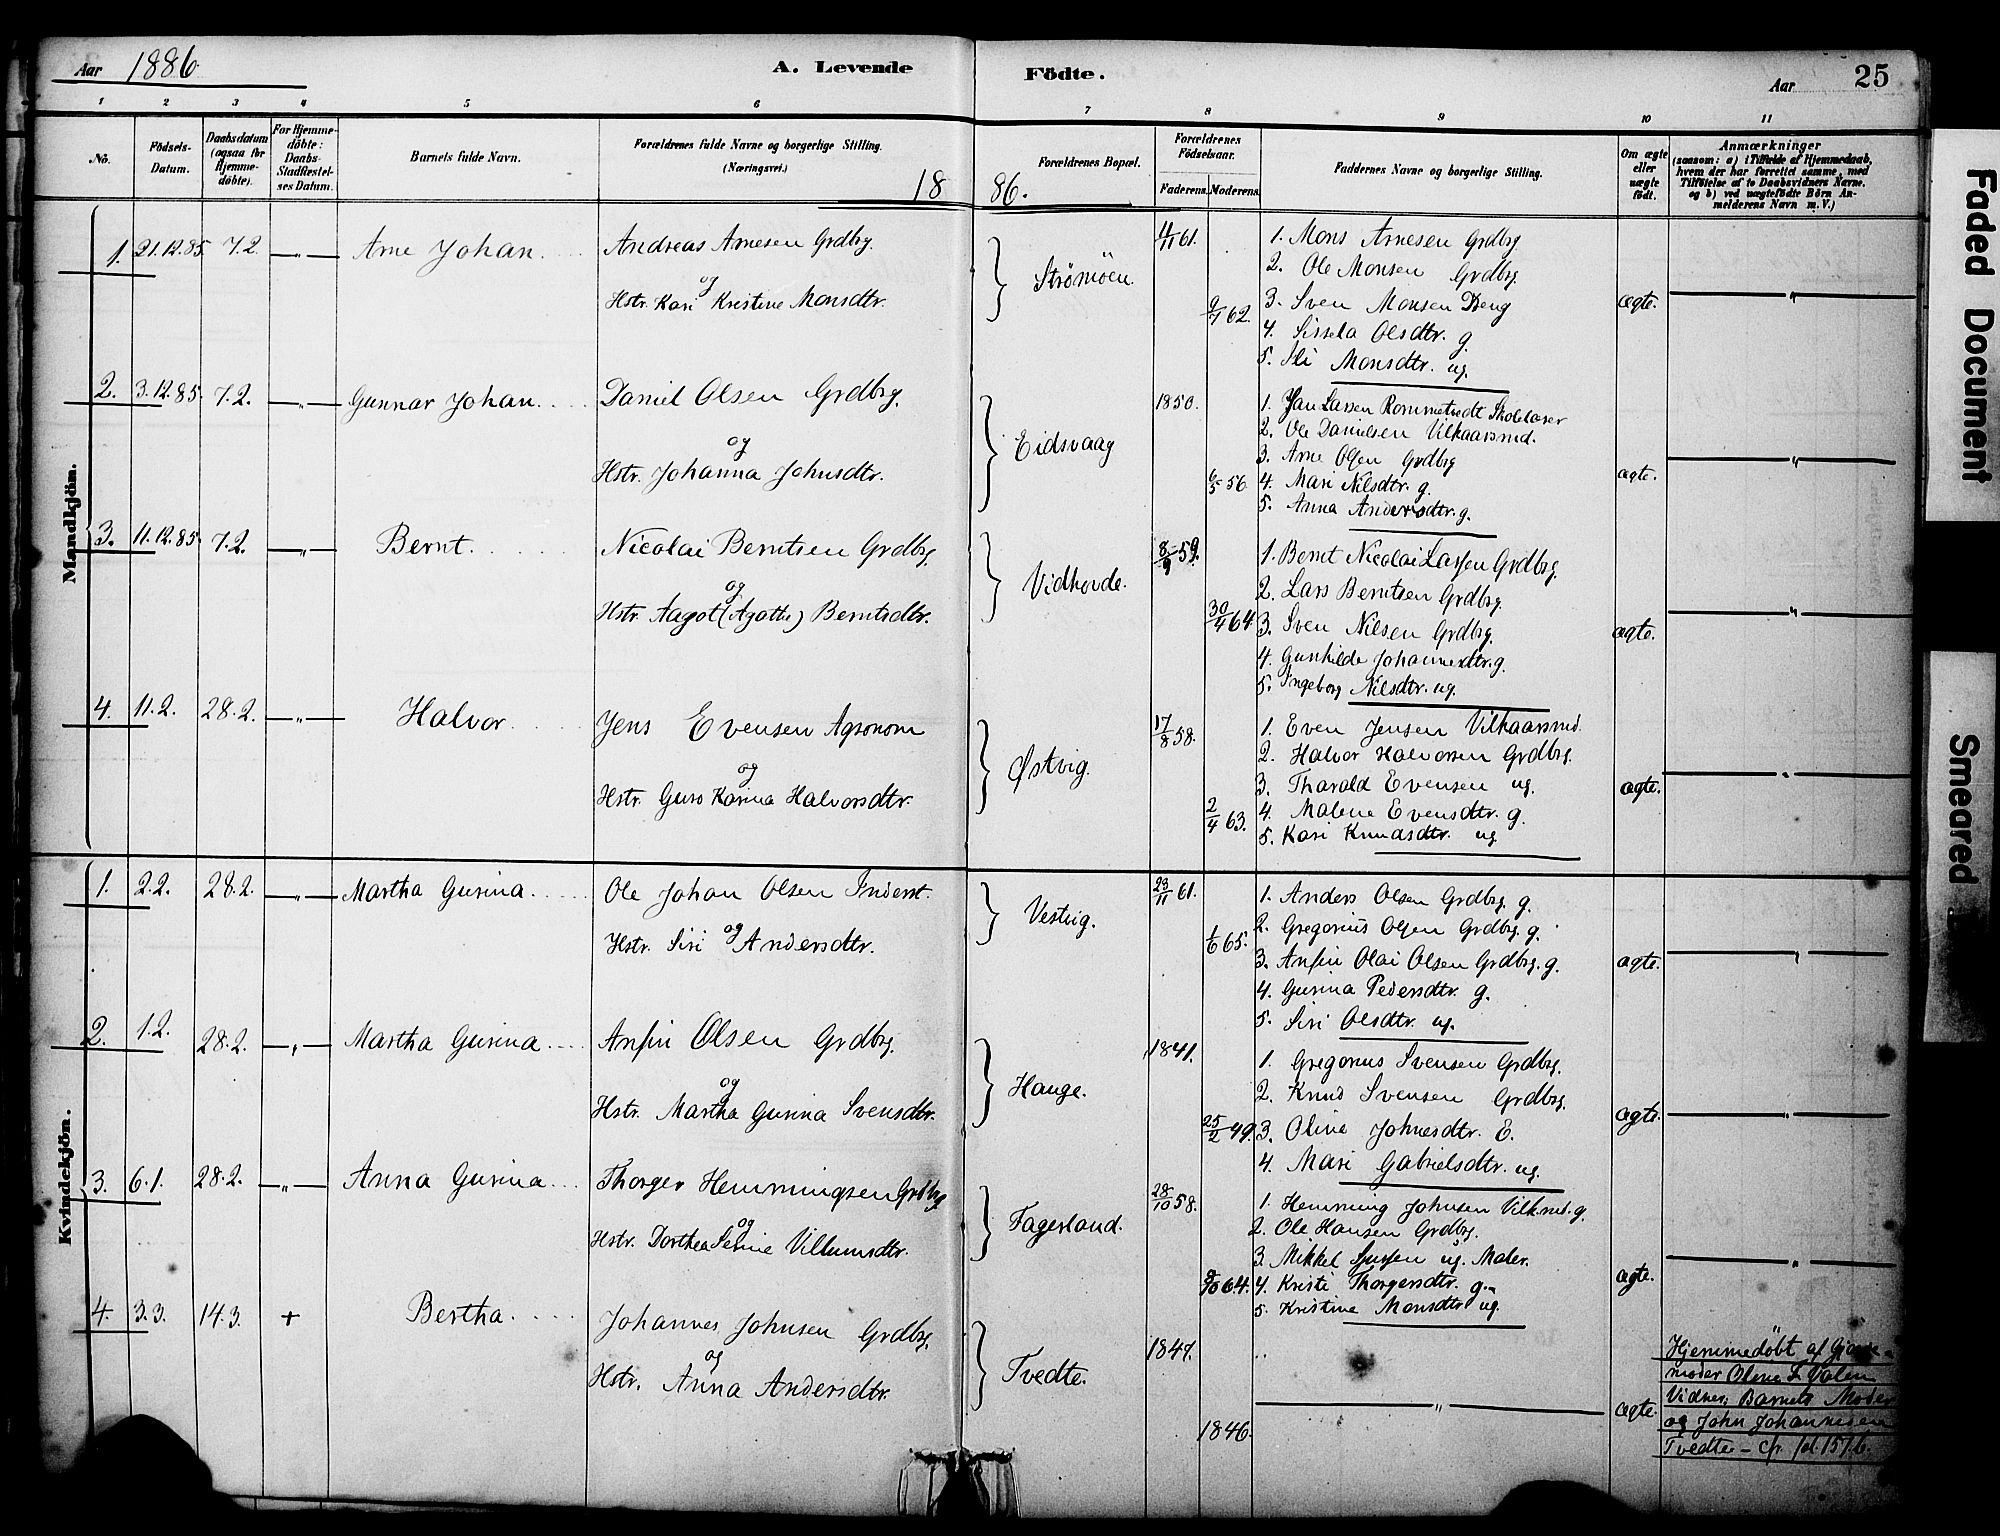 Aar 1886 A. Levende Födte. Aar 25
1 2 3 4 5 6 7 8 9 10 11
No. Födsels-Datum. Daabsdatum (ogsaa for Hjemme-döbte). For Hjemme-döbte: Daabs-Stadfæstel-ses Datum. Barnets fulde Navn. Forældrenes fulde Navne og borgerlige Stilling. (Næringsvei.) Forældrenes Bopæl. Forældrenes Födselsaar. Faderens. Moderens. Faddernes Navne og borgerlige Stilling. Om ægte eller uægte födt. Anmærkninger (saasom: a) i Tilfælde af Hjemmedaab, hvem der har forrettet samme, med Tilföielse af to Daabsvidners Navne, og b) ved uægtefödte Börn An-melderens Navn m. V.)
1886.
Mandkjön.
1. 21.12.85. 7.2. —„— Arne Johan. Andreas Arnesen Grdbrg. Strømøen. 11/11 61. 1. Mons Arnesen Grdbrg
2. Ole Monsen Grdbrg.
og
Hstr. Kari Kristine Monsdtr. 9/7 62. 3. Sven Monsen Dreng ægte. „
4. Sissela Olsdtr. g
5. Sli Monsdtr. ug.
2. 3.12.85. 7.2. —„— Gunnar Johan. Daniel Olsen Grdbrg. Eidsvaag 1850. 1. Jan Lassen Rommetvedt Skolelærer
2. Ole Danielsen Vilkaarsmd.
og
3. Arne Olsen Grdbrg
Hstr. Johanna Johnsdtr. 6/5 56. 4. Mari Nilsdtr. g. ægte. „
5. Anna Andersdtr. g.
3. 11.12.85. 7.2. —„— Bernt. Nicolai Berntsen Grdbrg. Vidhovde. 8/9 59. 1. Bernt Nicolai Lassen Grdbrg.
og
2. Lars Berntsen Grdbrg.
Hstr. Aagot (Agothe) Berntsdtr. 30/4 64. 3. Sven Nilsen Grdbrg. ægte. „
4. Gunhilde Johannesdtr. g.
5. Ingeborg Nilsdtr. ug.
4. 11.2. 28.2. —„— Halvor. Jens Evensen Agronom Østvig. 17/8 58. 1. Even Jensen Vilkaarsmd.
2. Halvor Halvorsen Grdbrg.
og
3. Tharald Evensen ug.
Hstr. Guro Karina Halvorsdtr. 2/4 63. 4. Malene Evensdtr. g. ægte. „
5. Kari Knudsdtr. ug
Kvindekjön.
1. 2.2. 28.2. —„— Martha Gurina. Ole Johan Olsen Inderst. Vestvig. 23/11 61. 1. Anders Olsen Grdbrg. g.
og
2. Gregorius Olsen Grdbrg. g.
Hstr. Siri Andersdtr. 1/6 65. 3. Anfin Olai Olsen Grdbrg. g. ægte. „
4. Gurina Pedersdtr. g.
5. Siri Olsdtr. ug.
2. 1.2. 28.2. —„— Martha Gurina. Anfin Olsen Grdbrg. Hauge. 1841. 1. Gregorius Svensen Grdbrg.
og
2. Knud Svensen Grdbrg.
Hstr. Martha Gurina Svensdtr. 25/2 49. 3. Oline Johnesdtr. E. ægte. „
4. Mari Gabrielsdtr. ug.
3. 6.1. 28.2. —„— Anna Gurina. Thorger Hemmingsen Grdbrg Fagerland. 28/10 58. 1. Hemming Johnsen Vilk.md. g.
2. Ole Hansen Grdbrg.
og
Hstr. Dorthea Serine Villumsdtr. 3. Mikkel Sjursen ug. Maler. „
9/10 64. 4. Kristi Thorgersdtr. g. ægte.
5. Kristine Monsdtr ug.
4. 3.3. 14.3. + Bertha. Johannes Johnsen Grdbrg. Tvedte. 1847. „ Hjemmedøbt af Gjorde-
og
moder Olene F. Valen
Hstr. Anna Andersdtr. 1846. „ ægte. Vidner: Barnets Moder
og John Johannesen
Tvedte – cfr fol. 157.6.
Faded Document
Smeared